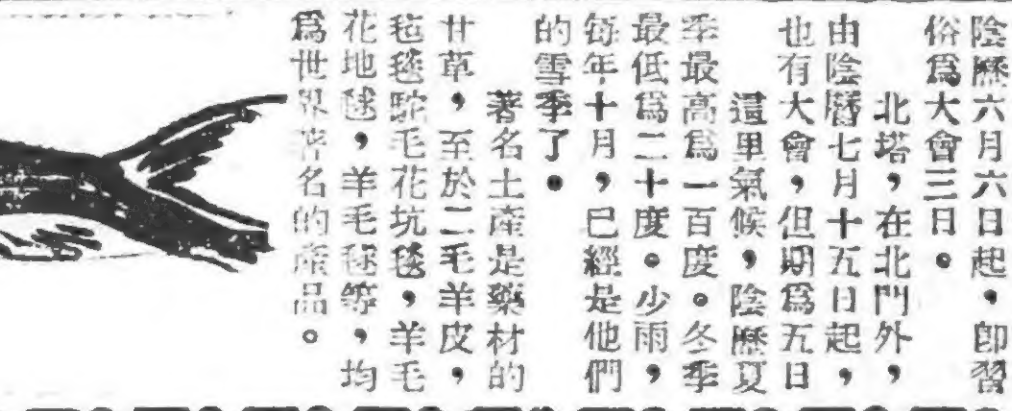 陰厯六月六日起，卽習
俗爲大會三日。
北塔，在北門外，
由陰曆七月十五日起，
也有大會，但期爲五日
這里氣候，陰厯夏
季最高爲一百度。冬季
最低爲二十度。少雨，
每年十月，已經是他們
的雪季了。
著名土產是藥材的
甘草，至於二毛羊皮，
毡毯駝毛花坑毯，羊毛
花地毯，羊毛毯等，均
爲世界著名的產品。